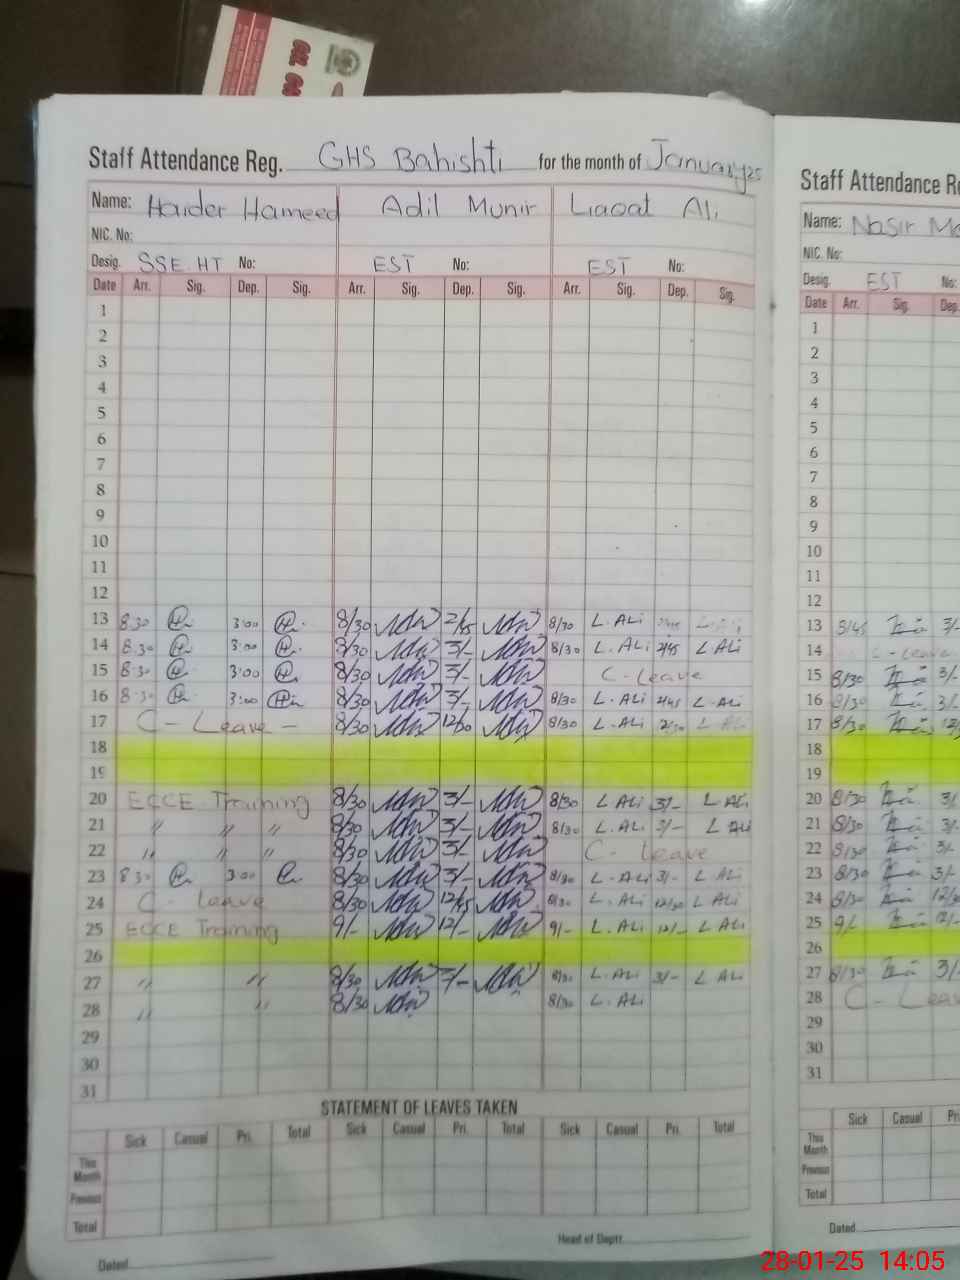 Staff Attendance Reg. GHS Bahishti for the month of January 25
Name: Haider Hameed Adil Munir Liaqat Ali
NIC. No:
Desig. SSE. HT No: EST No: EST No:
Date Arr. Sig. Dep. Sig. Arr. Sig. Dep. Sig. Arr. Sig. Dep. Sig.
1
2
3
4
5
6
7
8
9
10
11
12
13 8:30 3:00 8/30 2/45 8/30 L. ALi
14 8:30 3:00 8/30 3/- 8/30 L. ALi 2/45 L ALi
15 8:30 3:00 8/30 3/- C - Leave
16 8:30 3:00 8/30 3/- 8/30 L. ALi 2/45 L. ALi
17 C - Leave - 8/30 12/30 8/30 L. ALi L ALi
18
19
20 ECCE Training 8/30 3/- 8/30 L ALi 3/- L ALi
21 " " " 8/30 3/- 8/30 L. ALi 3/- L ALi
22 " " " 8/30 3/- C - Leave
23 8:30 3:00 8/30 3/- 8/30 L. ALi 3/- L ALi
24 C - Leave 8/30 12/45 8/30 L. ALi 12/30 L ALi
25 ECCE Training 9/- 12/- 9/- L. ALi 12/- L ALi
26
27 " " 8/30 3/- 8/30 L. ALi 3/- L ALi
28 " " 8/30 8/30 L. ALi
29
30
31
STATEMENT OF LEAVES TAKEN
Sick Casual Pri. Total Sick Casual Pri. Total Sick Casual Pri. Total
This Month
Previous
Total
Head of Deptt.
Dated
Staff Attendance Re
Name: Nasir
NIC. No:
Desig. EST No:
Date Arr. Sig. Dep.
1
2
3
4
5
6
7
8
9
10
11
12
13 8/45 3/-
14 C - Leave
15 8/30 3/-
16 8/30 3/-
17 8/30
18
19
20 8/30 3/-
21 8/30 3/-
22 8/30 3/-
23 8/30 3/-
24 8/30 12/30
25 9/- 12/-
26
27 8/30 3/-
28 C - Leave
29
30
31
Sick Casual Pri
This Month
Previous
Total
Dated
28-01-25 14:05